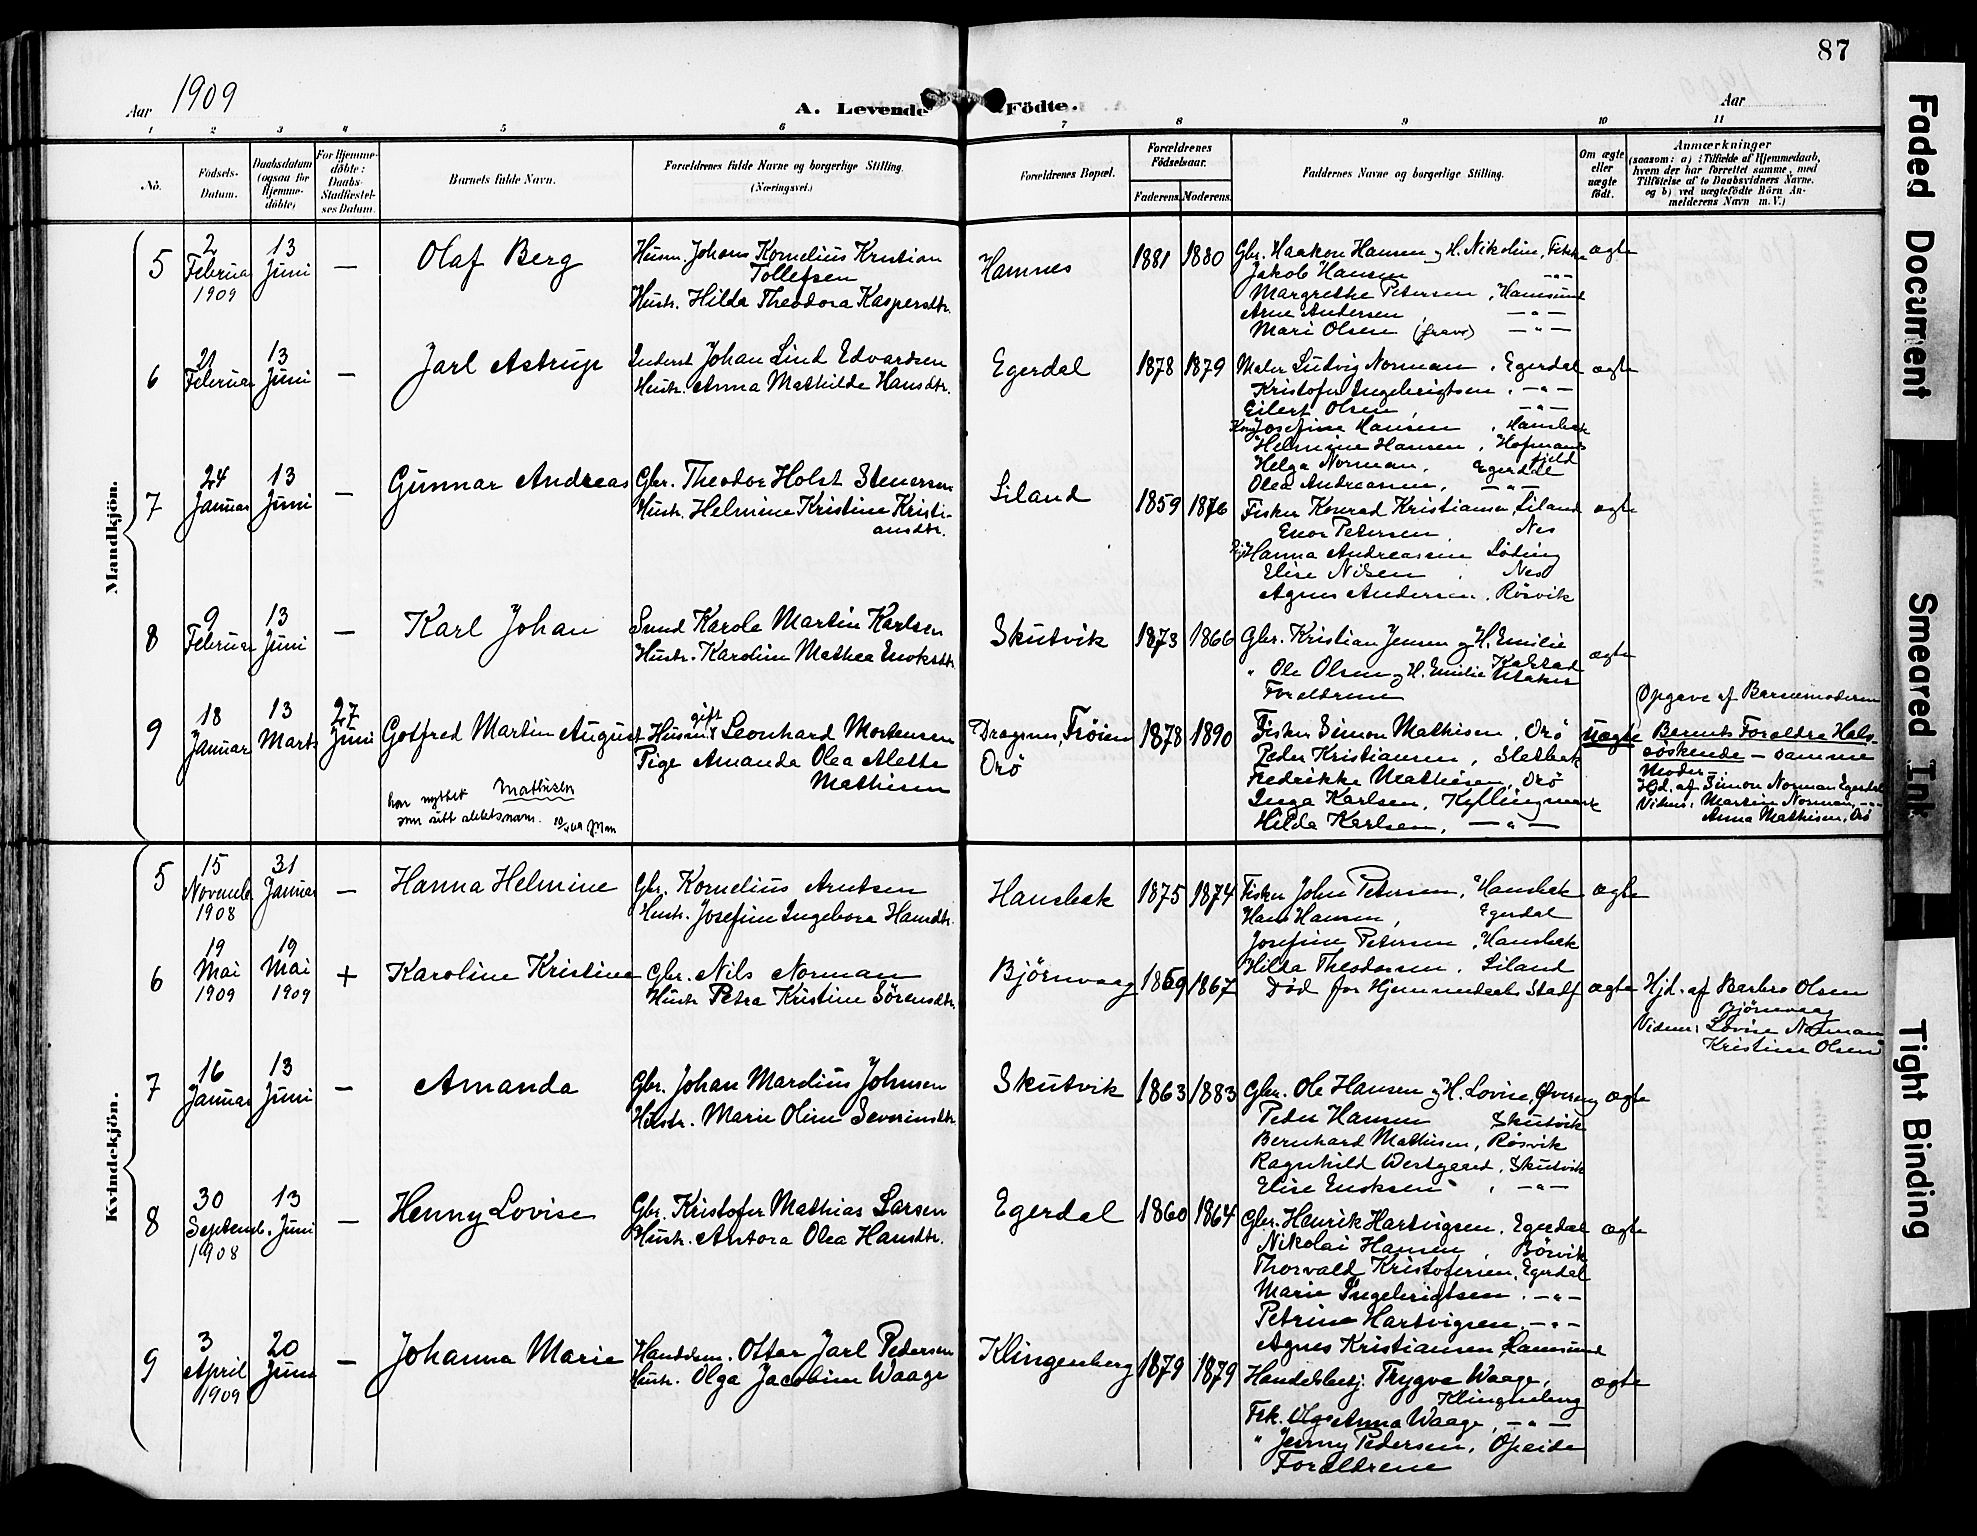 87
Aar 1909
A. Levende Födte.
Aar
1 2 3 4 5 6 7 8 9 10 11
No.
Födsels-
Datum.
Daabsdatum
(ogsaa for
Hjemme-
döbte)
For Hjemme-
döbte:
Daabs-
Stadfæstel-
ses Datum.
Barnets fulde Navn.
Forældrenes fulde Navne og borgerlige Stilling.
(Næringsvei.)
Forældrenes Bopæl.
Forældrenes
Födselsaar.
Faderens. Moderens.
Faddernes Navne og borgerlige Stilling.
Om ægte
eller
uægte
födt.
Anmærkninger
(saasom: a) i Tilfælde af Hjemmedaab,
hvem der har forrettet samme, med
Tilföielse af to Daabsvidners Navne,
og b) ved uægtefödte Börn An-
melderens Navn m. V.)
Mandkjön.
5
2
Februar
1909
13
Juni
—
Olaf Berg
Husm. Johans Kornelius Kristian
Tollefsen
Hustr. Hilda Theodora Kaspersdtr.
Hamnes
1881 1880
Gbr. Haakon Hansen og H. Nikoline,
Jakob Hansen —"—
Margrethe Petersen, Hamsund
Arne Andersen —"—
Mari Olsen —"—
ægte
6
21
Februar
13
Juni
—
Jarl Astrup
Inderst Johan Lind Edvardsen
Hustr. Anna Mathilde Hansdtr.
Egerdal
1878 1879
Maler Ludvig Norman, Egerdal
Kristofer Ingebrigtsen, —"—
Eilert Olsen, —"—
Josefine Hansen, Hansbak
Helmine Hansen, Hofmans
fjeld
Helga Norman, Egerdal
Olea Andreassen, —"—
ægte
7
24
Januar
13
Juni
—
Gunnar Andreas
Gbr. Theodor Holst Stenersen
Hustr. Helmine Kristine Kristi-
ansdtr.
Siland
1859 1876
Fisker Konrad Kristiansen, Siland
Enor Petersen, Nes
Hanna Andreassen Löding
Elise Nilsen, Nes
Agnes Andersen, Rösvik
ægte
8
9
Februar
13
Juni
—
Karl Johan
Karole Martin Karlsen
Hustr. Karoline Mathea Enoksdtr.
Skutvik
1873 1866
Gbr. Kristian Jensen og H. Emilie
Kalstad
" Ole Olsen og H. Emilie
Forældrene
ægte
9
18
Januar
13
Marts
27
Juni
Gotfred Martin August
har nyttet Mathisen
som sitt slektsnavn.
gift
Husm. Leonhard Mortensen
Pige Amanda Olea Alette
Mathisen
Dragsnes, Fröien
Orö
1878 1890
Fisker Simon Mathisen, Orö
Peder Kristiansen, Sletbak
Fredrikke Mathisen, Orö
Inga Karlsen, Kyllingmark
Hilda Karlsen, —"—
uægte
Opgave af Barnemoderen
Barnets Forældre Halv-
søskende — samme
Moder —
Hjd. af Simon Norman Egerdal
Vidner: Martin Norman, —"—
Anna Mathisen, Orö
Kvindekjön.
5
15
Novemb.
1908
31
Januar
—
Hanna Helmine
Gbr. Kornelius Arntsen
Hustr. Josefine Ingebora Hansdtr.
Hansbak
1875 1874
Fisker John Petersen, Hansbak
Hans Hansen, Egerdal
Josefine Petersen, Hansbak
Hilda Theodorsen, Siland
ægte
6
19
Mai
1909
19
Mai
1909
+
Karoline Kristine
Gbr. Nils Norman
Hustr. Petra Kristine Sörensdtr.
Björnvaag
1869 1867
Död før Hjemmedaab. Stadf.
ægte
Hjd. af Barbro Olsen
Björnvaag
Vidner: Lovise Norman
Kristine Olsen
7
16
Januar
13
Juni
—
Amanda
Gbr. Johan Mardius Johnsen
Hustr. Marie Oline Severinsdtr.
Skutvik
1863 1883
Gbr. Ole Hansen og H. Lovise, Övereng
Peder Hansen Skutvik
Bernhard Mathisen, Rösvik
Ragnhild Westgaard, Skutvik
Elise Enoksen, —"—
ægte
8
30
Septemb.
1908
13
Juni
—
Henny Lovise
Gbr. Kristofer Mathias Larsen
Hustr. Antora Olea Hansdtr.
Egerdal
1860 1864
Gbr. Henrik Hartvigsen, Egerdal
Nikolai Hansen, Bösvik
Thorvald Kristofersen, Egerdal
Marie Ingebrigtsen, —"—
Petrine Hartvigsen, —"—
Agnes Kristiansen, Hamsund
ægte
9
3
April
1909
20
Juni
—
Johanna Marie
Handelsm. Ottar Jarl Pedersen
Hustr. Olga Jacobine Waage
Klingenberg
1879 1879
Handelsbetj. Trygve Waage,
Klingenberg
Frk. Anna Waage, —"—
" Jenny Pedersen, Opeide
Forældrene
ægte
Faded Document
Smeared Ink
Tight Binding